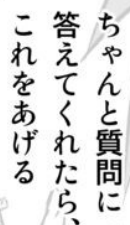 ちゃんと質問に
答えてくれたら、
これをあげる